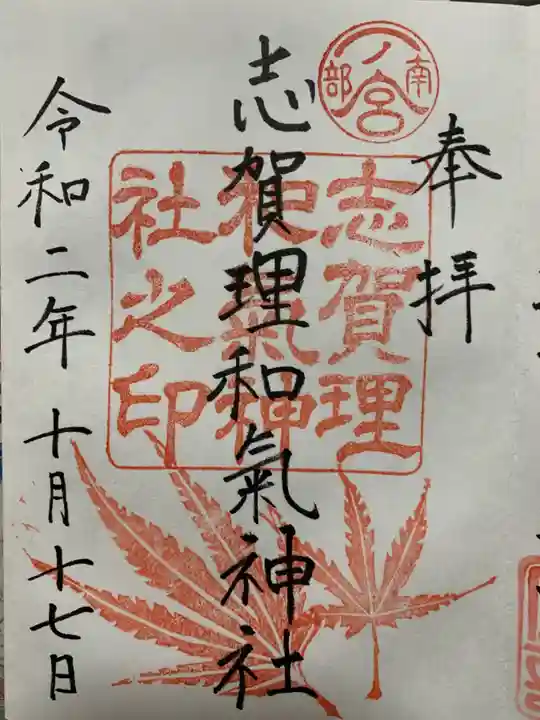 奉拝
一ノ宮
南部
志賀理和氣神社
志賀理
和氣神
社之印
令和二年十月十七日